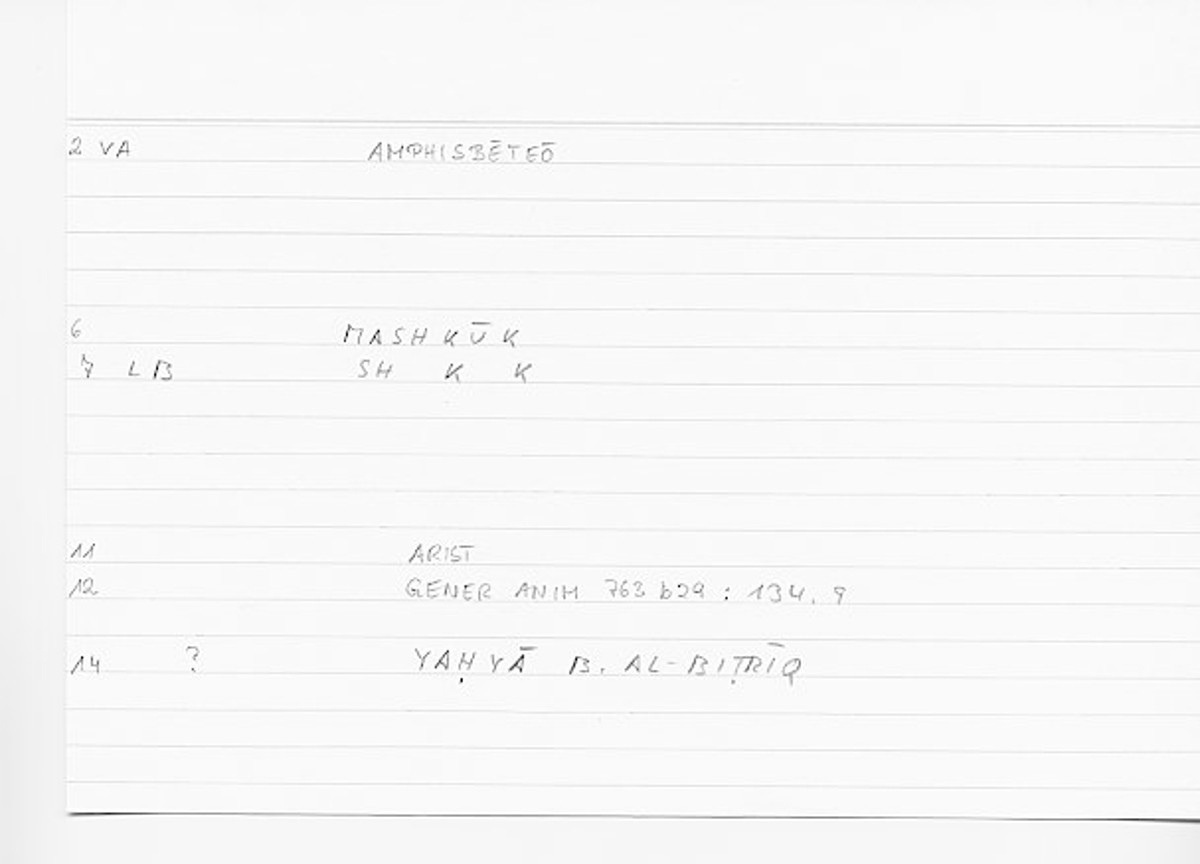 2 VA AMPHISBĒTEŌ
6 MASHKŪK
7 LB SH K K
11 ARIST
12 GENER ANIM 763 b29 : 134.9
14 ? YAḤYĀ B. AL-BIṬRĪQ